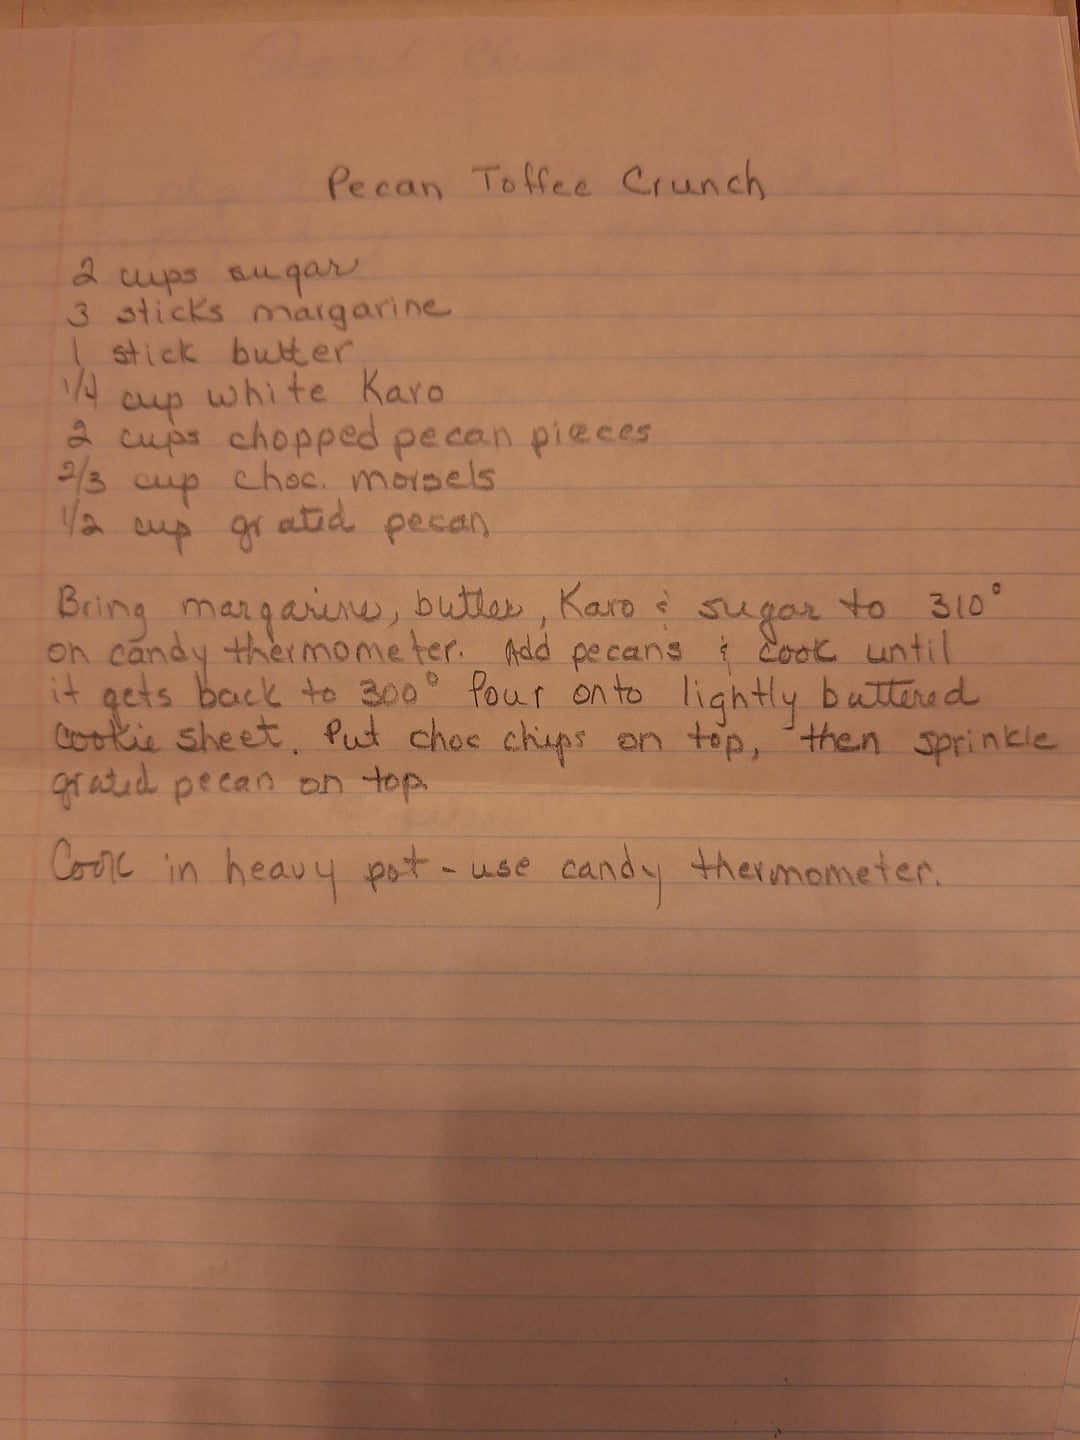 Pecan Toffee Crunch
2 cups sugar
3 sticks margarine
1 stick butter
1/4 cup white Karo
2 cups chopped pecan pieces
2/3 cup choc. morsels
1/2 cup grated pecan
Bring margarine, butter, Karo & sugar to 310°
on candy thermometer. Add pecans & cook until
it gets back to 300° Pour onto lightly buttered
cookie sheet. Put choc chips on top, then sprinkle
grated pecan on top.
Cook in heavy pot - use candy thermometer.